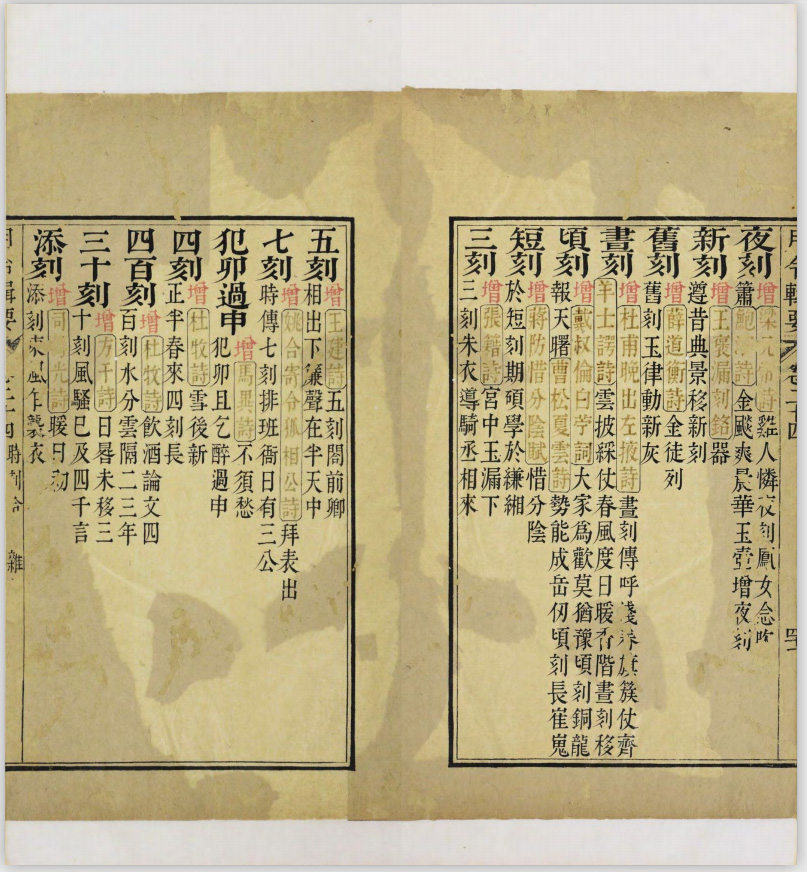 月令輯要 卷二十四
夜刻 增梁元帝詩雞人憐夜刻鳳女念吹
簫鮑泉詩金飈爽晨華玉壺增夜刻
新刻 增王褒漏刻銘器
遵昔典景移新刻
舊刻 增薛道衡詩金徒列
舊刻玉律動新灰
晝刻 增杜甫晚出左掖詩晝刻傳呼淺春旗簇仗齊
羊士諤詩雲披綵仗春風度日暖香階晝刻移
頃刻 增戴叔倫白苧詞大家爲歡莫猶豫頃刻銅龍
報天曙曹松夏雲詩勢能成岳仞頃刻長崔嵬
短刻 增蔣防惜分陰賦惜分陰
於短刻期碩學於縑緗
三刻 增張籍詩宮中玉漏下
三刻朱衣導騎丞相來
五刻 增王建詩五刻閤前卿
相出下簾聲在半天中
七刻 增姚合寄令狐相公詩拜表出
時傳七刻排班衙日有三公
犯卯過申 增馬異詩不須愁
犯卯且乞醉過申
四刻 增杜牧詩雪後新
正半春來四刻長
四百刻 增杜牧詩飲酒論文四
百刻水分雲隔二三年
三十刻 增方干詩日晷未移三
十刻風騷已及四千言
添刻 增司馬光詩暖日初
添刻東風乍襲衣
月令輯要 卷二十四 時刻令 雜